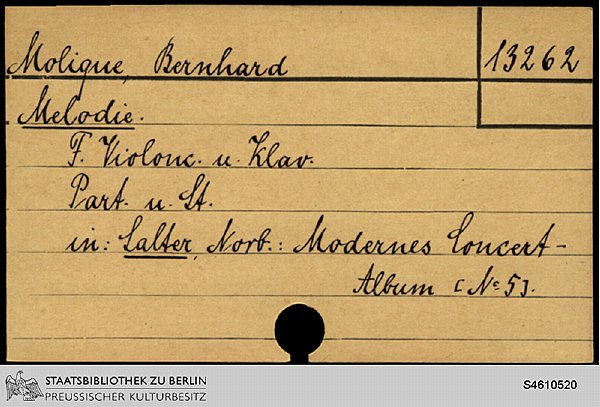 Molique, Bernhard 13262
Melodie.
F. Violonc. u. Klav.
Part. u. St.
in: Salter, Norb.: Modernes Concert-
Album [No 5].
STAATSBIBLIOTHEK ZU BERLIN
PREUSSISCHER KULTURBESITZ
S4610520